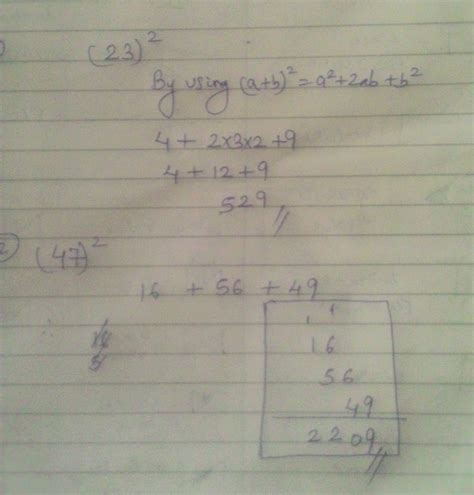 (23)²
By using (a+b)² = a²+2ab+b²
4 + 2x3x2 +9
4 + 12 + 9
529 //
2 (47)²
16 + 56 + 49
1 1
16
56
49
2209 //